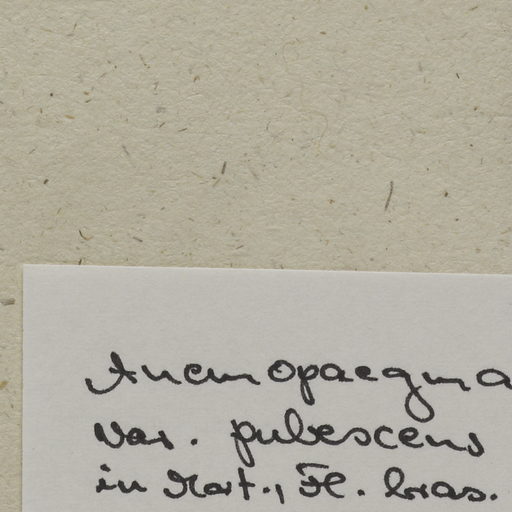 Anemopaegma
var. pubescens
in Mart., Fl. bras.